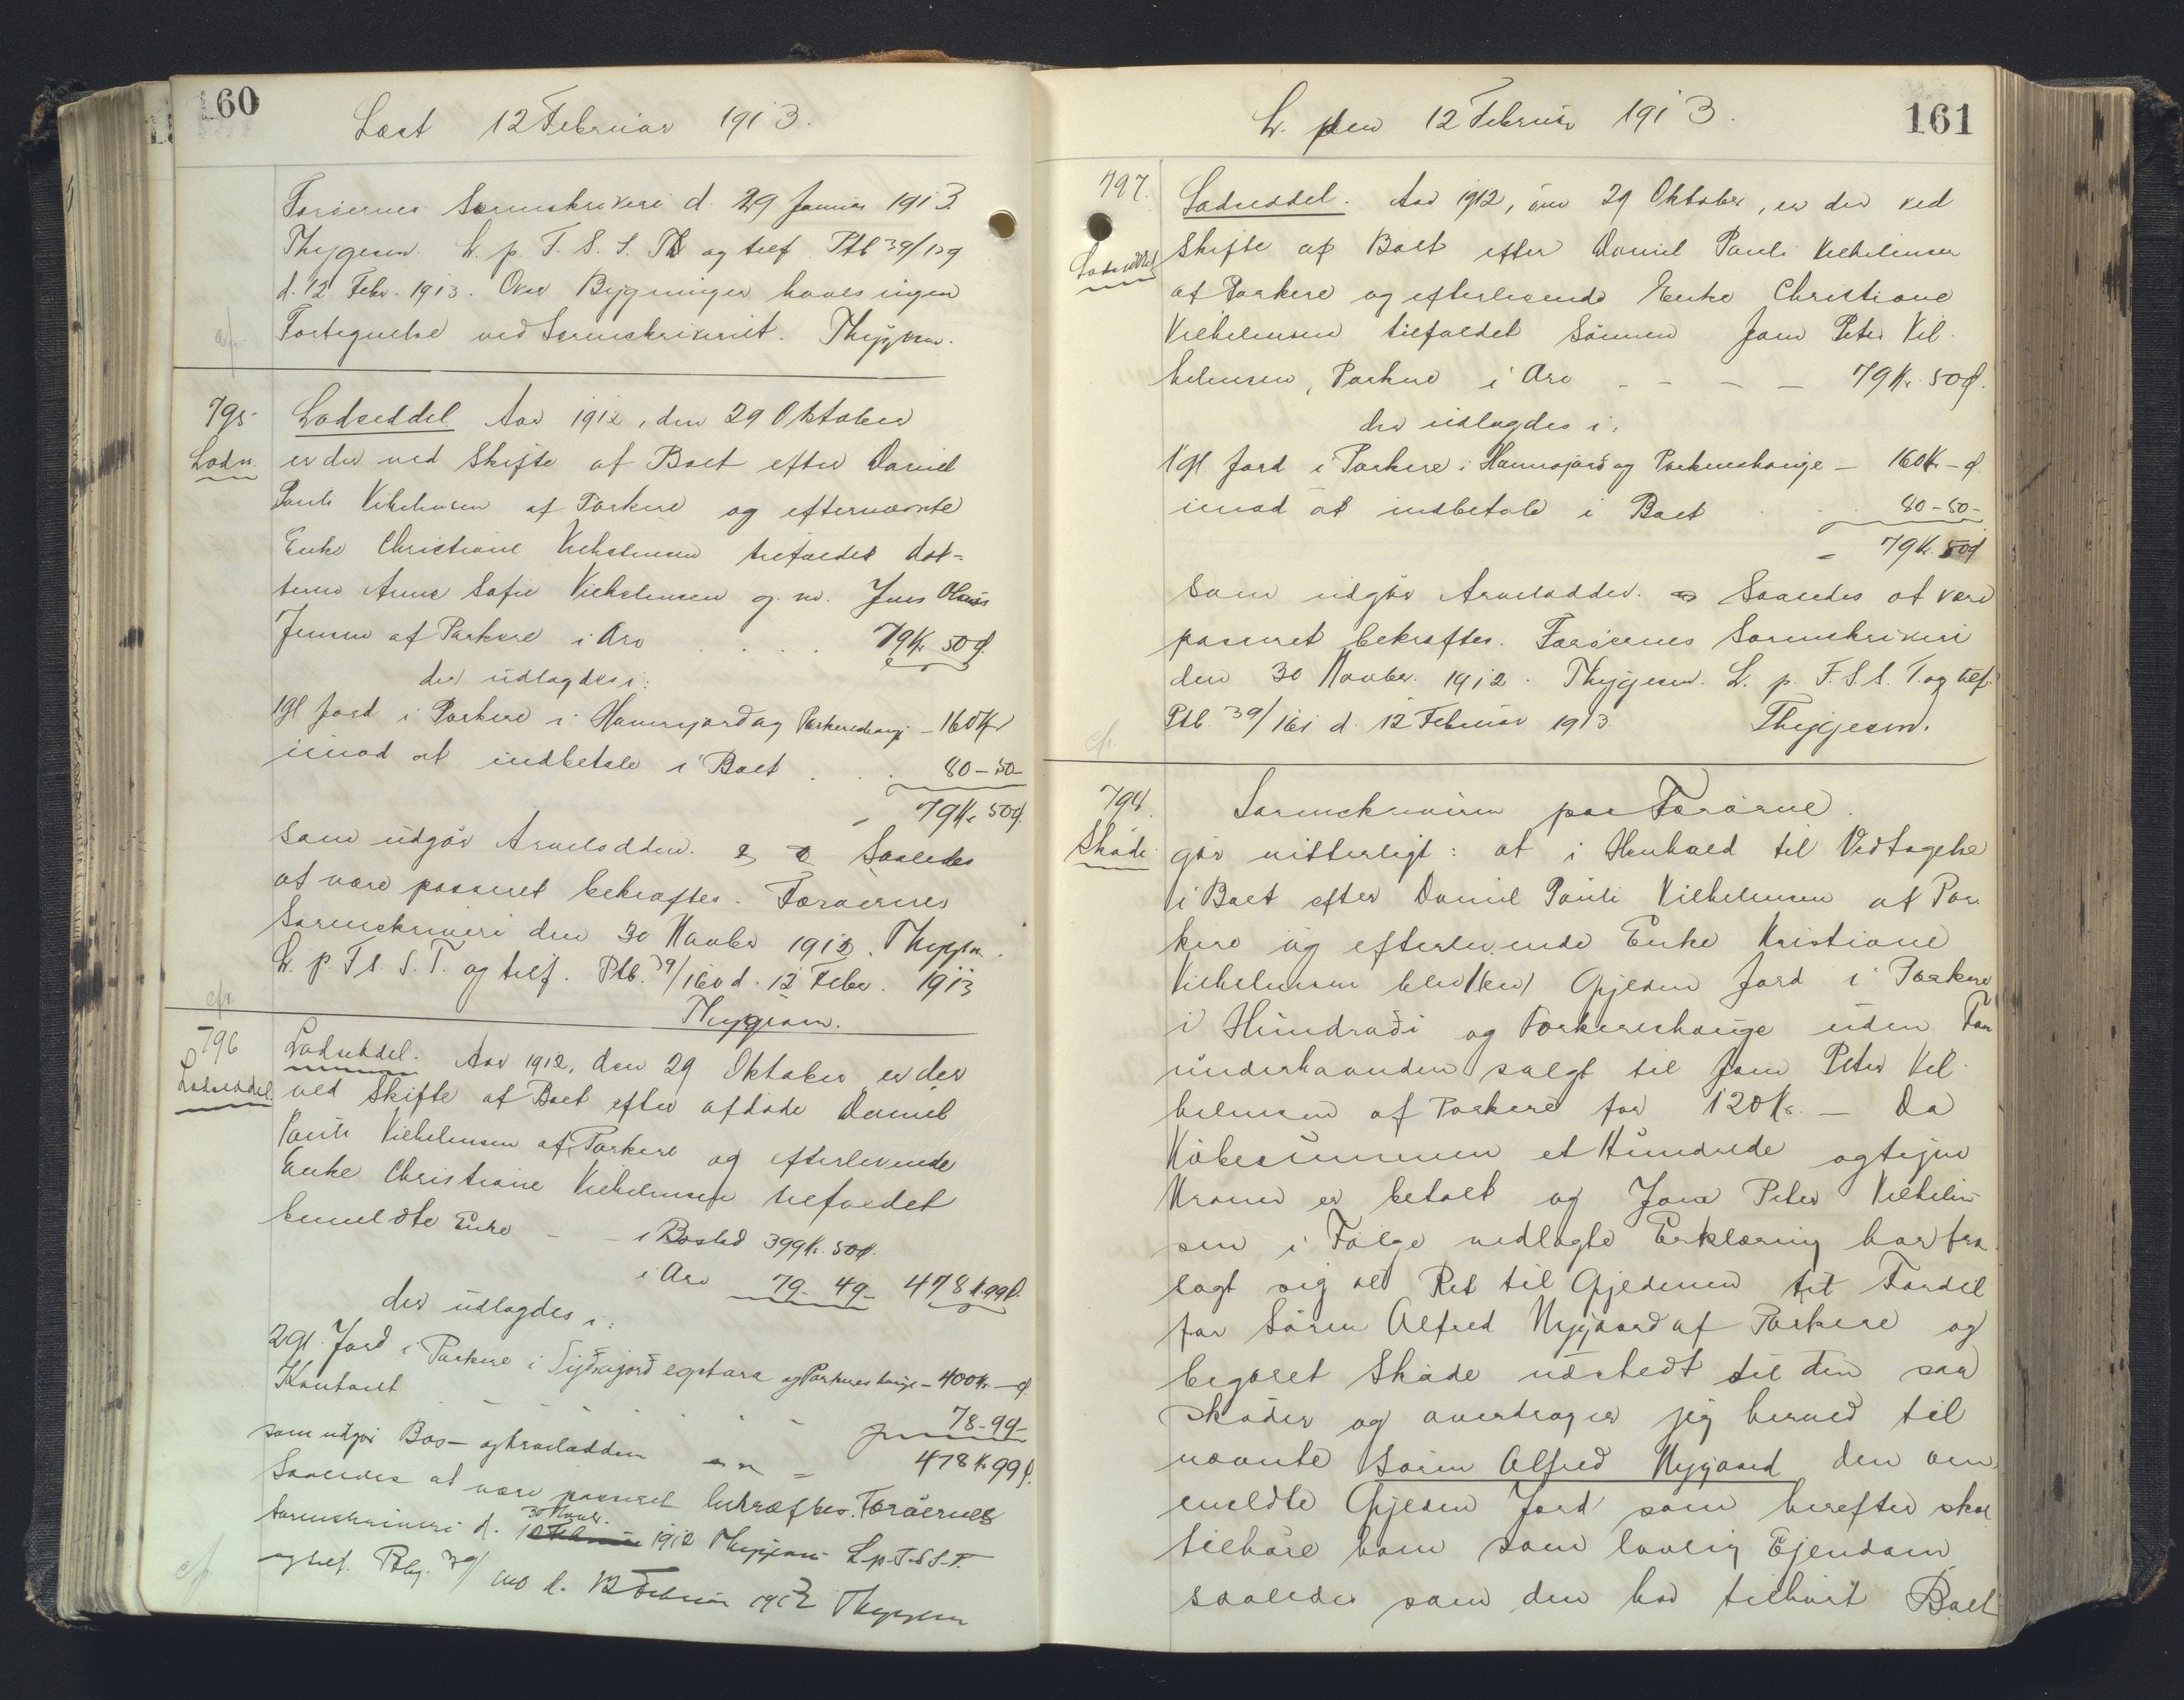 160
Læst 12 Februar 1913.
Færøernes Sorenskriveri d. 29 Januar 1913
Thygesen. L. p. F. S. S. Th og tilf. Ptb 39/159
d. 12 Febr. 1913. Over Bygninger haves ingen
Fortegnelse ved Sorenskriveriet. Thygesen.
cfr.
795.
Lodss.
Lodseddel Aar 1912, den 29 Oktober
er der ved Skifte af Boet efter Daniel
Pauli Vilhelmsen af Porkere og efternævnte
Enke Christiane Vilhelmsen tilfaldet dat=
teren Anne Sofie Vilhelmsen g. m. Jens Olaus
Jensen af Porkere i Arv . . . . 79 Kr 50 Ø.
der udlagdes i:
1 gl Jord i Porkere i Hamrajord og Porkereshauge - 160 Kr
imod at indbetale i Boet . . . 80 - 50 -
- 79 Kr 50 Ø.
som udgør Arvelodden. Saaledes
at være passeret bekræftes. Færøernes
Sorenskriveri den 30 Novbr 1912. Thygesen.
L. p. F. S. S. T. og tilf. Ptb. 39/160 d. 12 Febr. 1913
Thygesen.
cfr.
796
Lodseddel
Lodseddel. Aar 1912, den 29 Oktober er der
ved Skifte af Boet efter afdøde Daniel
Pauli Vilhelmsen af Porkere og efterlevende
Enke Christiane Vilhelmsen tilfaldet
bemeldte Enke - - i Boslod 399 Kr. 50 Ø.
i Arv 79 - 49 - 478 K. 99 Ø.
der udlagdes i:
2 gl. Jord i Porkere i Sydrajord egstara og Porkeres hauge - 400 Kr. - Ø
Kontant 78 - 99 -
som udgør Bos- og Arvelodden - 478 Kr 99 Ø.
Saaledes at være passeret bekræftes. Færøernes
30 Novbr.
Sorenskriveri d. 1912 Thygesen L. p. F. S. S. T.
og tilf. Ptb. 39/160 d. 12 Februar 1913 Thygesen
cfr
161
L. den 12 Februar 1913.
797.
Lodseddel
Lodseddel. Aar 1912, den 29 Oktober, er der ved
Skifte af Boet efter Daniel Pauli Vilhelmsen
af Porkere og efterlevende Enke Christiane
Vilhelmsen tilfaldet Sønnen Jam Peter Vil-
helmsen, Porkere i Arv - - - - 79 Kr. 50 Ø.
der udlagdes i:
1 gl. Jord i Porkere i Hamrajord og Porkereshauge - 160 Kr - Ø
imod at indbetale i Boet . . . 80 - 50 -
- 79 K. 50 Ø
som udgør Arvelodden. Saaledes at være
passeret bekræftes. Færøernes Sorenskriveri
den 30 Novber. 1912. Thygesen. L. p. F. S. S. T. og tilf.
Ptb. 39/161 d. 12 Februar 1913. Thygesen.
cfr
798.
Skøde
Sorenskriveren paa Færøerne.
gør vitterligt: at i Henhold til Vedtagelse
i Boet efter Daniel Pauli Vilhelmsen af Por-
kere og efterlevende Enke Kristiane
Vilhelmsen blev 1 (en) Gylden Jord i Porkere
i Hundradi og Porkereshauge uden For
underhaanden solgt til Jam Peter Vil-
helmsen af Porkere for 120 Kr. - Da
Købesummen et Hundrede og tyve
Kroner er betalt og Jam Peter Vilhelm-
sen i Følge vedlagte Erklæring har fra-
sagt sig al Ret til Gyldenen til Fordel
for Søren Alfred Nygaard af Porkere og
begæret Skøde udstedt til den saa
skøder og overdrager jeg herved til
nævnte Søren Alfred Nygaard den om-
meldte Gylden Jord som herefter skal
tilhøre ham som lovlig Ejendom
saaledes som den har tilhørt Boet